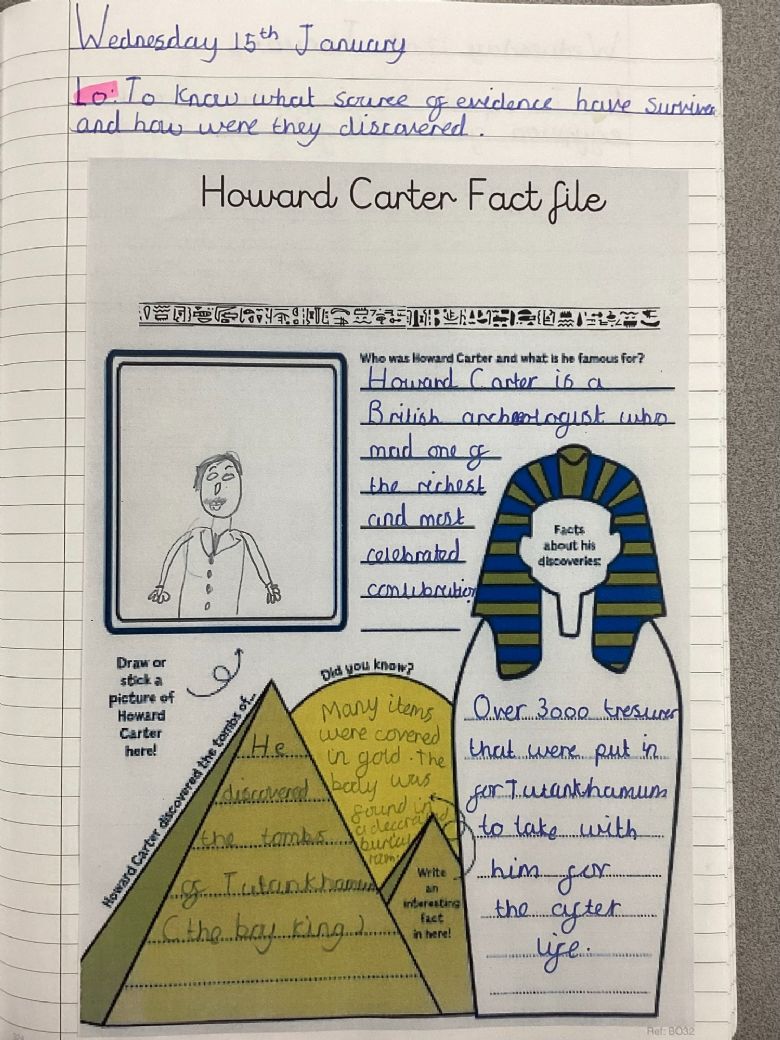 Wednesday 15th January
Lo: To know what source of evidence have survive
and how were they discovered.
Howard Carter Fact file
Who was Howard Carter and what is he famous for?
Howard Carter is a
British archeologist who
mad one of
the richest
and most
celebrated
contribution
Draw or
stick a
picture of
Howard
Carter
here!
Howard Carter discovered the tombs of...
He
discovered
the tombs
of Tutankhamun
(the boy king)
Did you know?
Many items
were covered
in gold. The
body was
found in
a decorated
burial
Write
an
interesting
fact
in here!
Facts
about his
discoveries:
Over 3000 tresures
that were put in
for Tutankhamum
to take with
him for
the after
life.
Ref: BO32